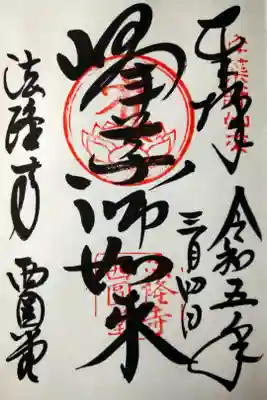 奉拝
令和五年
三月四日
峰薬師如来
法隆寺
西圓堂
法隆寺
西圓堂